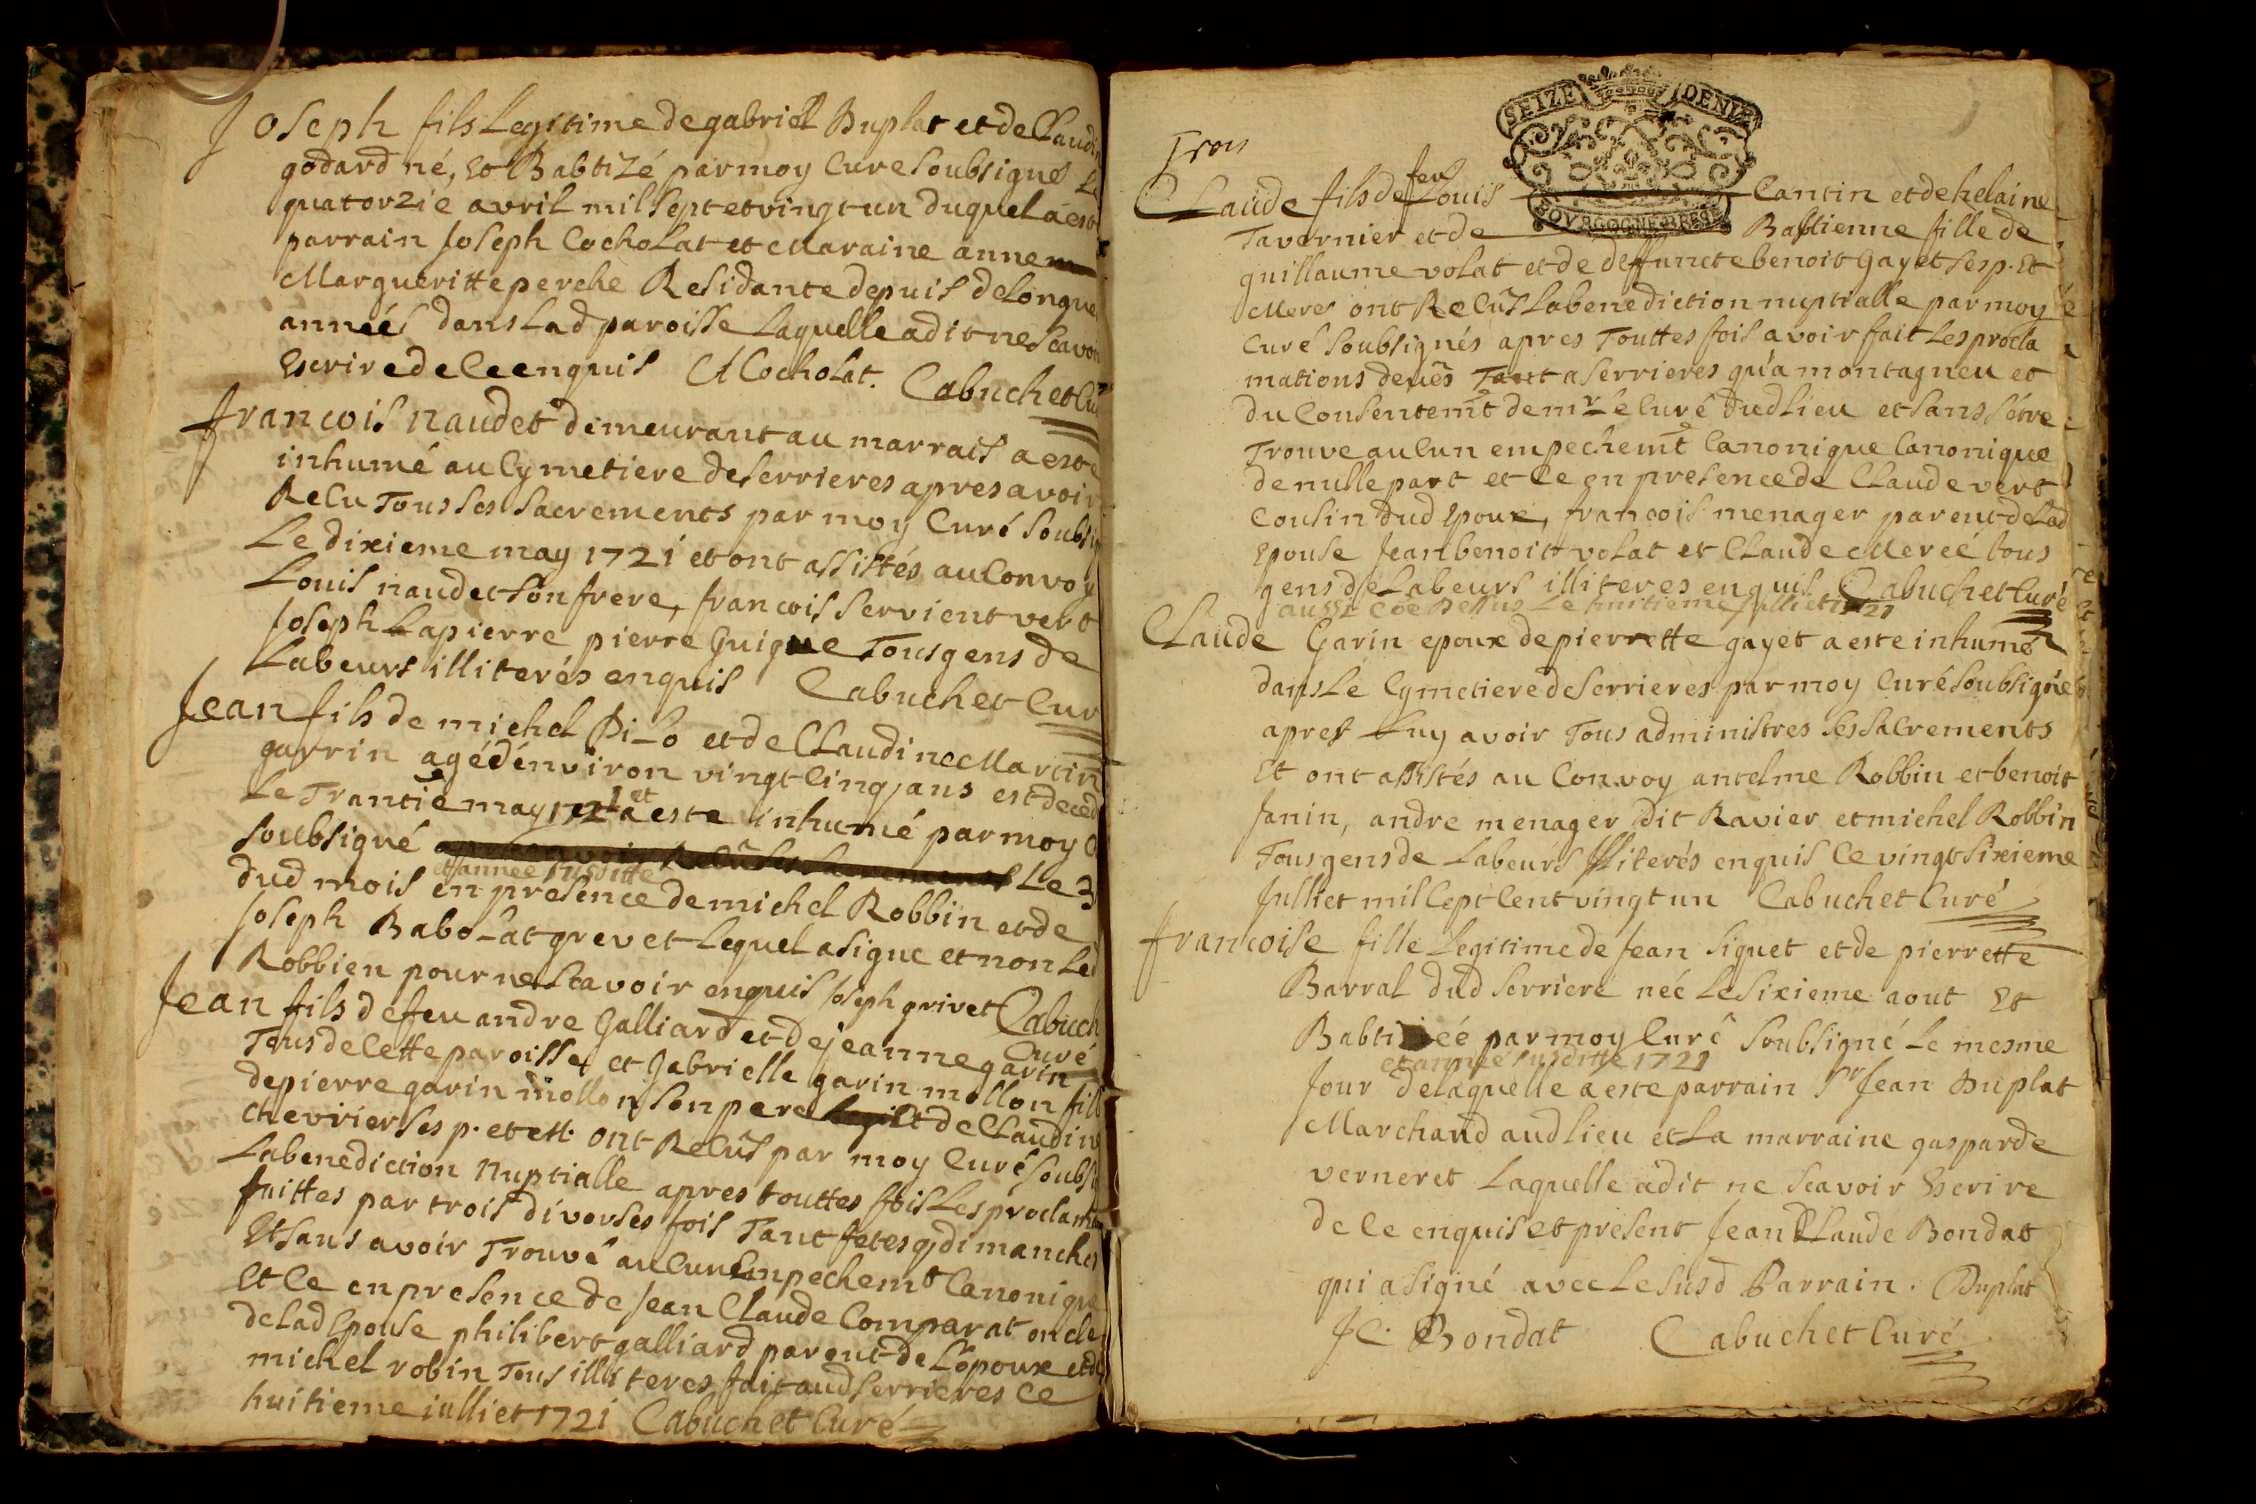 Joseph fils Legitime de gabriel Duplat et de Claudi
godard né, Et Babtizé par moy Cure Soubsigné Le
quatorzie avril mil Sept et vingt un duquel a este
parrain Joseph Cocholat et Maraine anne
Margueritte perche Residante depuis de Longue
année dans Lad paroisse Laquelle a dit ne Scavoir
Escrire de Ce enquis Cocholat. Cabuchet Cu
francois naudet demeurant au marrais a este
inhumé au Cymetiere de Serrieres apres avoir
Recu Tous Ses Sacrements par moy Curé Soubsig
Le dixieme may 1721 et ont assistés au Convoy
Louis naudet Son frere, francois Servient vert
Joseph Lapierre pierre Guigue Tous gens de
Labeurs illiterés enquis Cabuchet Cur
Jean fils de michel Pilo et de Claudine Martin
garrin agé d'environ vingt Cinq ans est deced
Le Trantie may 1721 et a este inhumé par moy C
Soubsigné Le 3
et année Susditte
dud mois en presence de michel Robbin et de
Joseph Babolat grevet Lequel a signe et non Led
Robbien pour ne Scavoir enquis Joseph grivet Cabuch
Curé
Jean fils de feu andre Galliard et de jeanne garin
Tous de Cette paroisse, et Gabrielle garin mollon fill
de pierre garin mollon Son pere et de Claudine
Chevrier Ses p. et M. ont Recus par moy Curé Soubsi
La benediction Nuptialle apres touttes fois Les proclama
faittes par trois diverses fois Tant fetes q dimanches
Et Sans avoir Trouvé aucun Empechemt Canonique
Et Ce en presence de Jean Claude Comparat oncle
de Lad Epouse philibert galliard parent de L'epoux et de
michel robin Tous illiteres fait aud Serrieres Ce
huitieme julliet 1721 Cabuchet Curé
Trois
SEIZE DENIE
BOVRGOGNE BRESSE
Claude fils de feu Louis Cantin et de helaine
Tavernier et de Bastienne fille de
guillaume volat et de deffuncte benoit Gayet Ses p. Et
Meres ont Recus La benediction nuptialle par moy
Curé Soubsignés apres Touttes fois avoir fait Les procla
mations deues Tant a Serrieres qu'a montagneu et
du Consentemt de mr Le Curé dud Lieu et Sans S'étre
Trouve aucun empechemt Canonique Canonique
de nulle part et Ce en presence de Claude vert
Cousin dud Epoux, francois menager parent de Lad
Epouse Jean benoit volat et Claude Mereé tous
gens de Labeurs illiteres enquis Cabuchet Curé
aussi Coe Dessus Le huitieme Julliet 1721
Claude Garin epoux de pierrette gayet a este inhumé
dans Le Cymetiere de Serrieres par moy Curé Soubsigné
apres Luy avoir Tous administres Ses Sacrements
Et ont assistés au Convoy antelme Robbin et benoit
Janin, andre menager dit Ravier et michel Robbin
Tous gens de Labeurs illiterés enquis Ce vingt Sixieme
Julliet mil Cept Cent vingt un Cabuchet Curé
francoise fille Legitime de Jean Siguet et de pierrette
Barral dud Serriere née Le Sixieme aout Et
Babtizeé par moy Curé Soubsigné Le mesme
et année Susditte 1721
Jour de Laquelle a este parrain Sr Jean Duplat
Marchand aud Lieu et La marraine gasparde
verneret Laquelle a dit ne Scavoir Escrire
de Ce enquis et present Jean Claude Bondat
qui a signé avec Le Susd Parrain. Duplat
J C. Bondat Cabuchet Curé